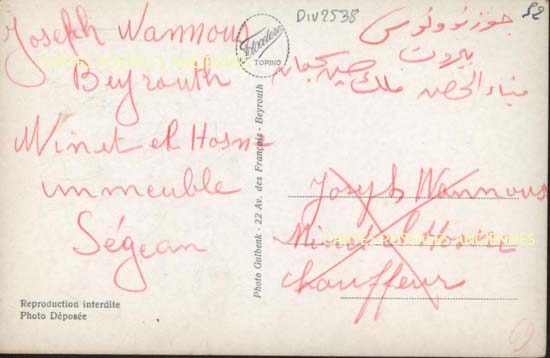 Joseph Wannous
Beyrouth
Minet el Hosn
immeuble
Ségean
Reproduction interdite
Photo Déposée
Photo Gulbenk - 22 Av. des Français - Beyrouth
TORINO
DIV2538
52
جوزف ونوس
بيروت
ميناء الحصن ملك
Joseph Wannous
Minet el Hosn
chauffeur
CARTES POSTALES ANCIENNES